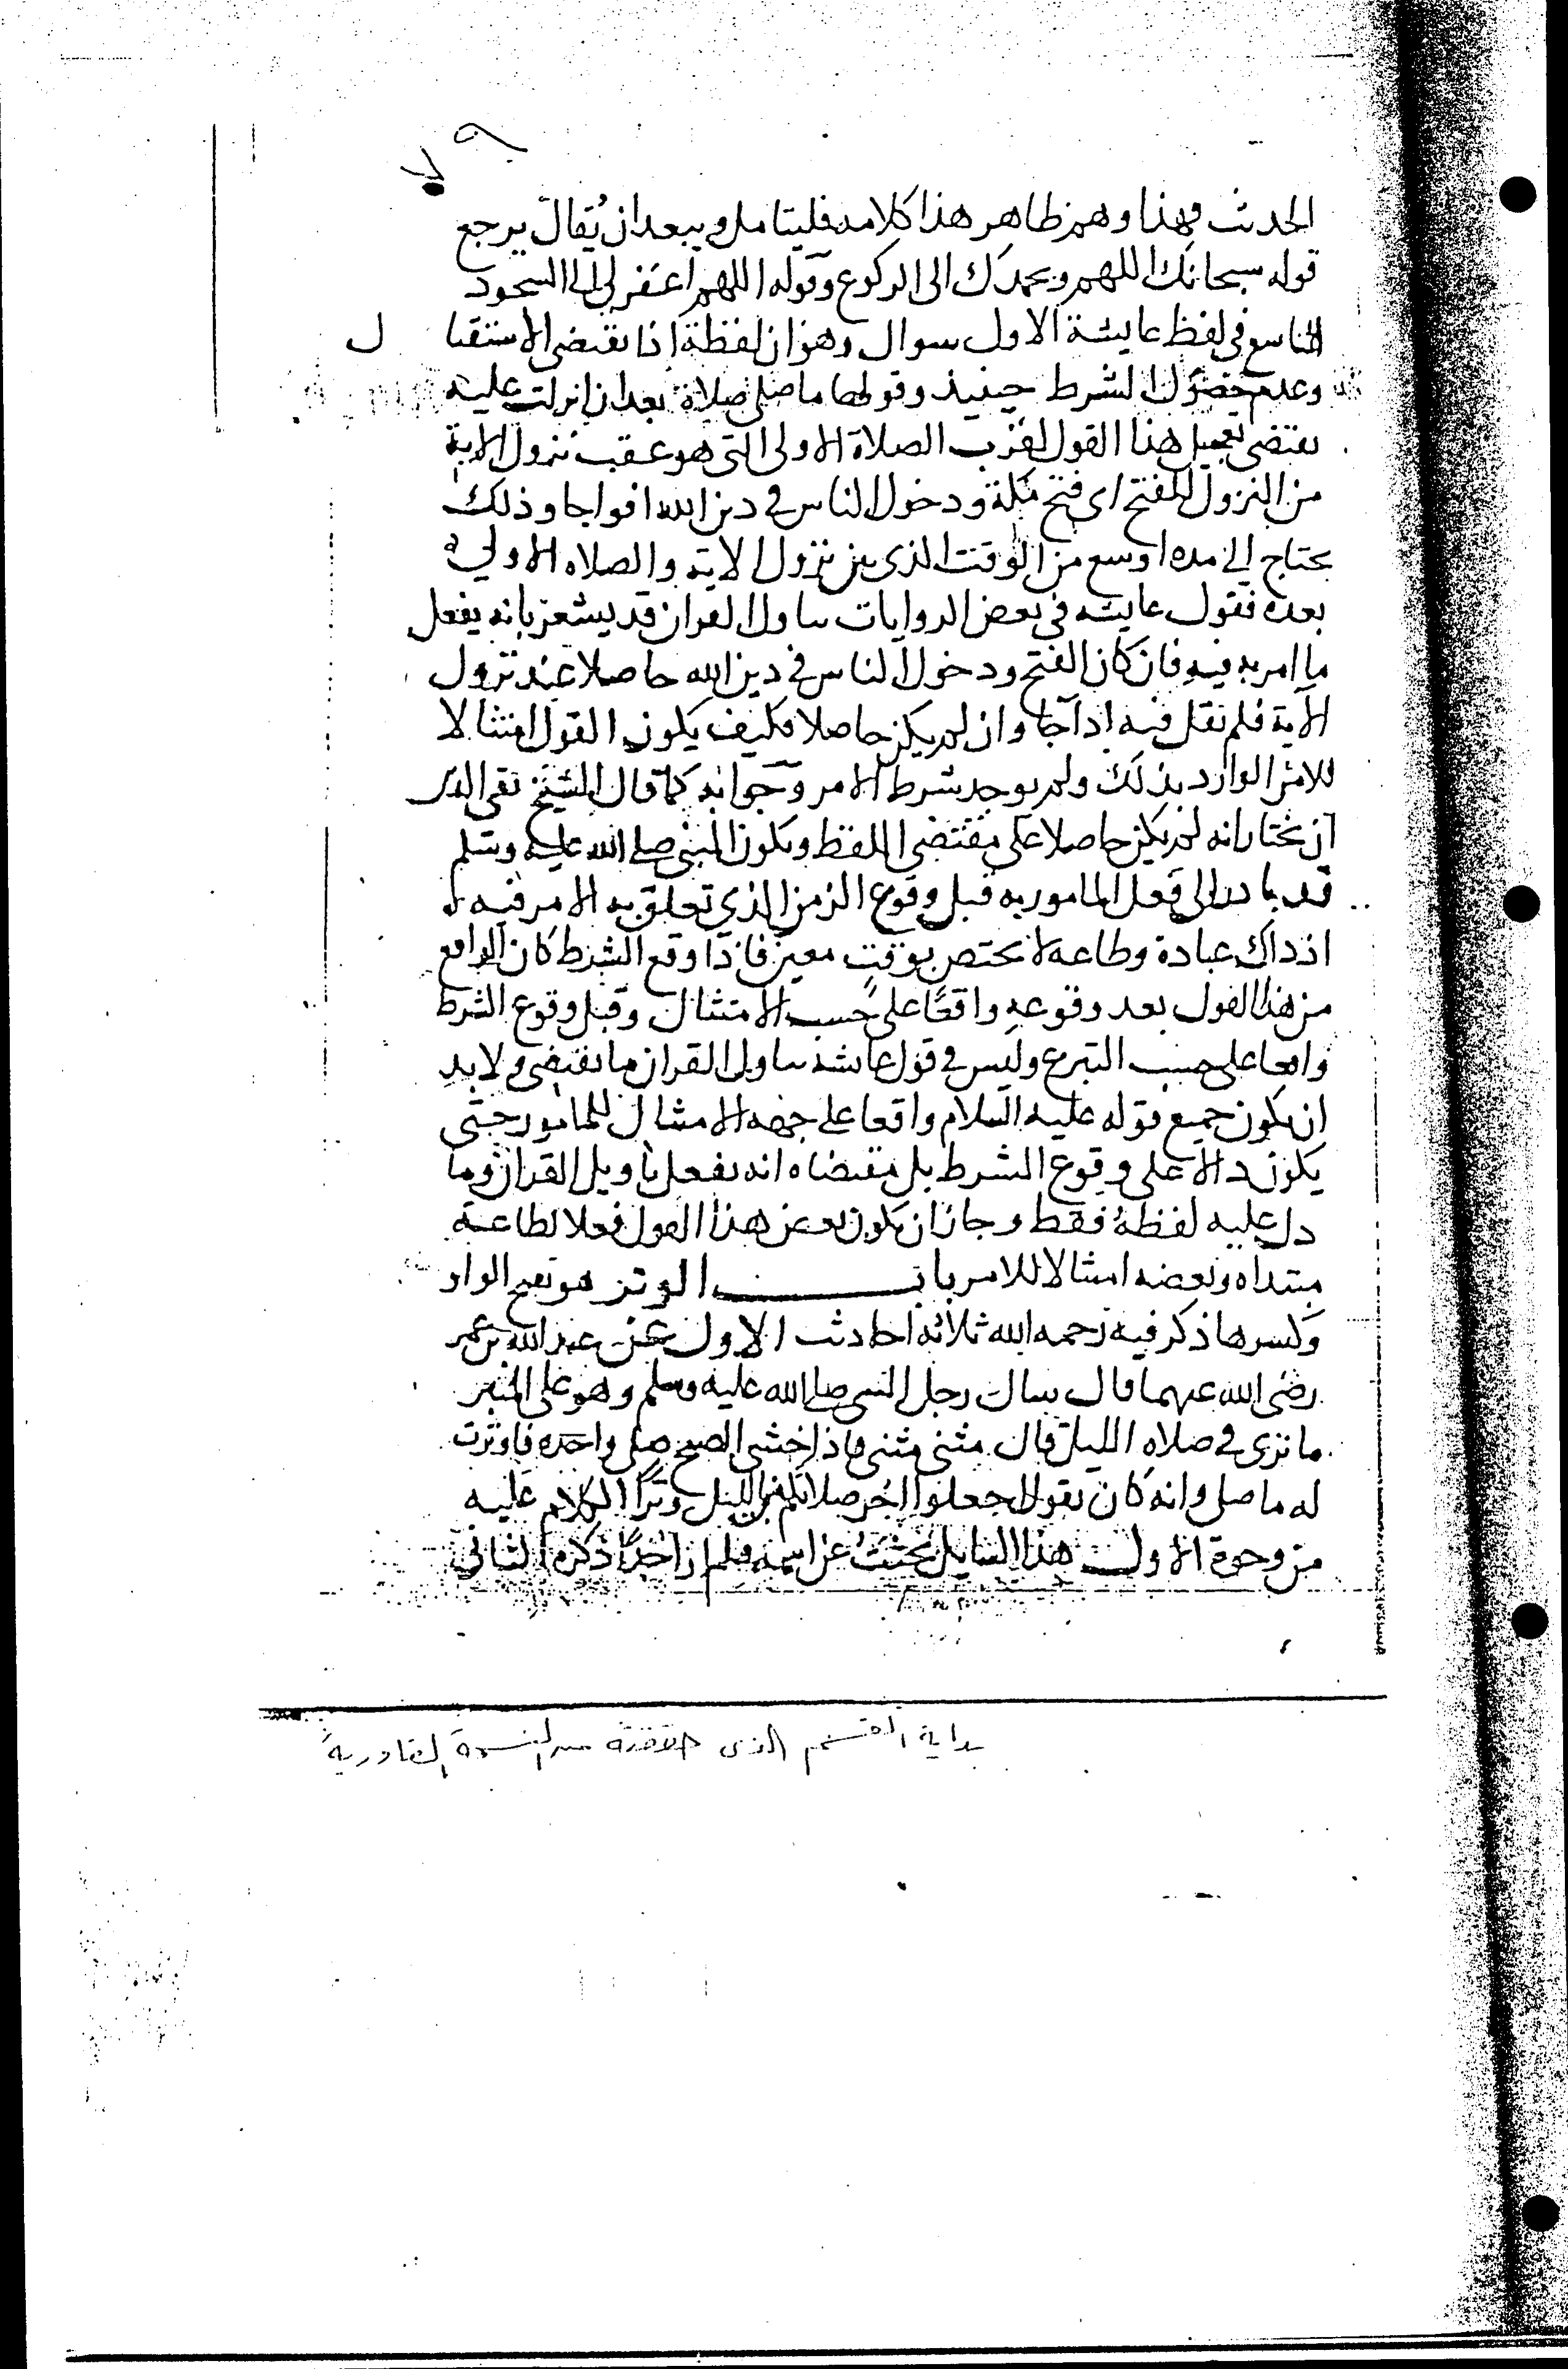 الحديث وهذا وهم ظاهر هذا كلامه فليتامل ويبعد ان يُقال يرجع
قوله سبحانك اللهم وبحمدك الى الركوع وقوله اللهم اغفر لي الى السجود
التاسع في لفظ عايشة الاول سوال وهو ان لفظة اذا تقتضي الاستقبال
وعدم حصول الشرط حينيذ وقولها ما صلى صلاة بعد ان انزلت عليه
يقتضي تعجيل هذا القول لقرب الصلاة الاولى التي هو عقب نزول الاية
من النزول للفتح اى فتح مكة ودخول الناس في دين الله افواجا وذلك
يحتاج الى مده اوسع من الوقت الذى بين نزول الاية والصلاه الاولى
بعده فقول عايشه في بعض الروايات يتاول القران قد يشعر بانه يفعل
ما امر به فيه فان كان الفتح ودخول الناس في دين الله حاصلا عند نزول
الآية فلم نقل فيه اذا جا وان لم يكن حاصلا فكيف يكون القول امتثالا
للامر الوارد بذلك ولم يوجد شرط الامر وجوابه كما قال الشيخ تقي الدين
ان نختار انه لم يكن حاصلا على مقتضى اللفظ ويكون النبي صلى الله عليه وسلم
قد بادر الى فعل المامور به قبل وقوع الزمن الذي تعلق به الامر فيه
اذ ذاك عبادة وطاعه لا تختص بوقت معين فاذا وقع الشرط كان الواقع
من هذا القول بعد وقوعه واقعًا على حسب الامتثال وقبل وقوع الشرط
واقعا على حسب التبرع وليس في قول عايشه يتاول القران ما يقتضى ولابد
ان يكون جميع قوله عليه السلام واقعا على جهه الامتثال للمامور حتى
يكون دالا على وقوع الشرط بل مقتضاه انه يفعل تاويل القران وما
دل عليه لفظهُ فقط وجاز ان يكون بعض هذا القول فعلا لطاعة
مبتداه وبعضه امتثالا للامر باب الوتر هو بفتح الواو
وكسرها ذكر فيه رحمه الله ثلاثة احاديث الاول عن عبد الله بن عمر
رضي الله عنهما قال سال رجل النبي صلى الله عليه وسلم وهو على المنبر
ما ترى في صلاه الليل قال مثنى مثنى فاذا خشى الصبح صلى واحده فاوترت
له ما صلى وانه كان يقول اجعلوا اخر صلاتكم بالليل وترًا الكلام عليه
من وجوه الاول هذا السايل بحثتُ عن اسمه فلم ار احدًا ذكره الثاني
بداية القسم الذى حققته من النسخة القادرية